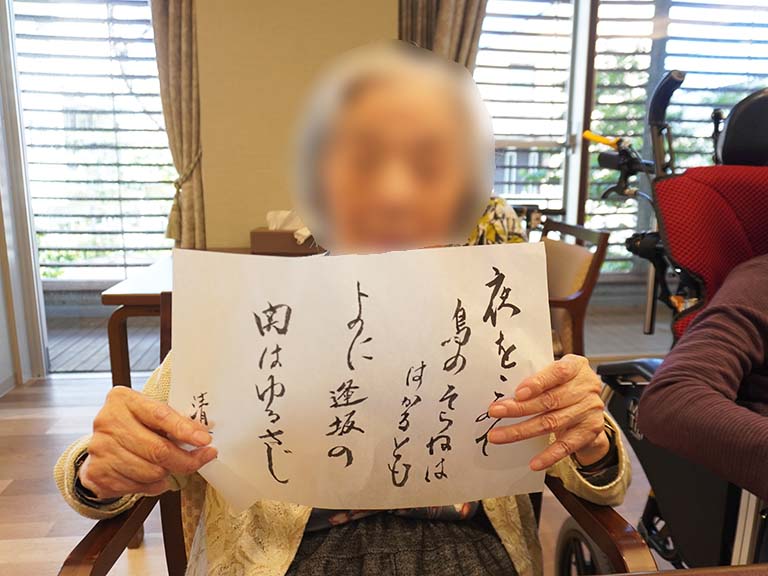 夜をこめて
鳥のそらねは
はかるとも
よに逢坂の
関はゆるさじ
清